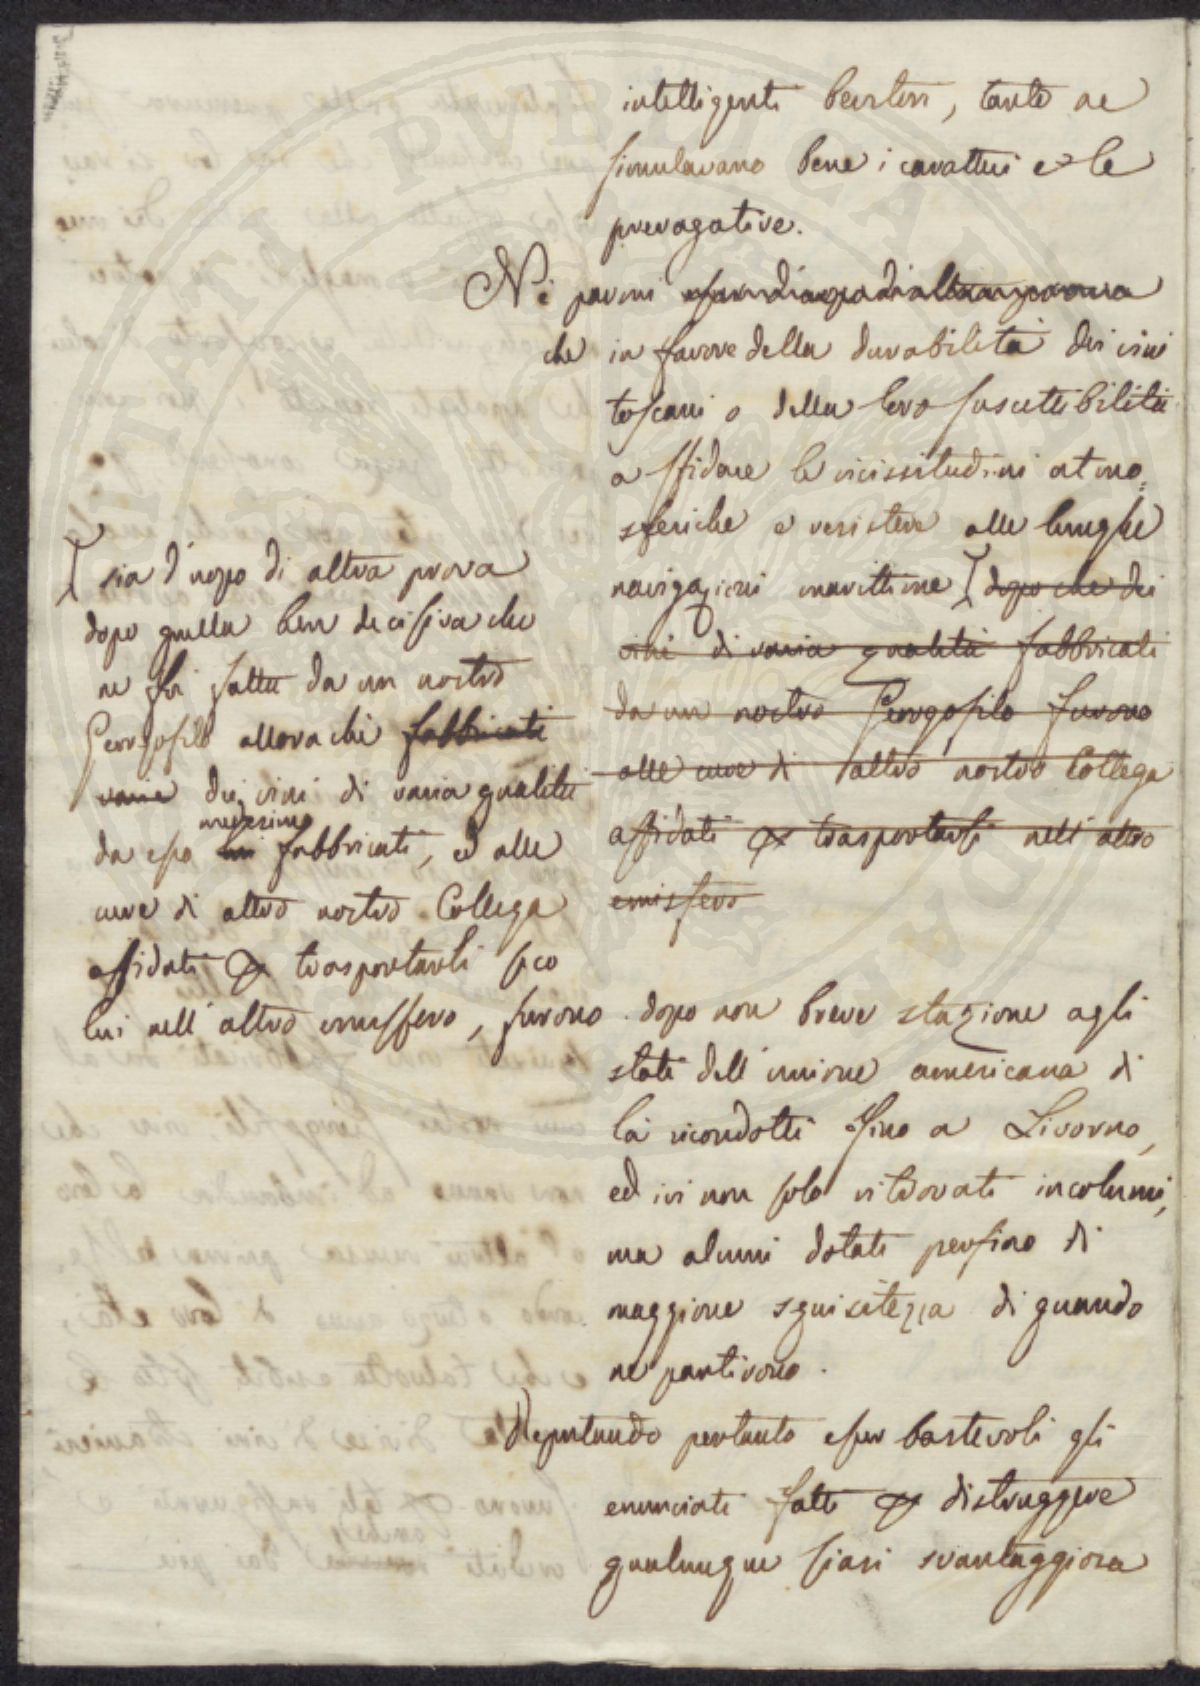 intelligenti bevitori, tanto ne
simulavano bene i caratteri e le
prerogative.
Nè parmi
che in favore della durabilità dei vini
toscani o della loro suscettibilità
a sfidare le vicissitudini atmo=
sferiche e resistere alle lunghe
navigazioni marittime dopo che dei
vini di varia qualità fabbricati
da un nostro Georgofilo furono
alle cure di altro nostro Collega
affidati p trasportarsi nell'altro
emisfero
sia d'uopo di altra prova
dopo quella ben decisiva che
ne fu fatta da un nostro
Georgofilo allora che fabbricati
varie dei vini di varia qualità
da esso lui medesimo fabbricati, ed alle
cure di altro nostro Collega
affidati p trasportarli seco
lui nell'altro emisfero, furono dopo non breve stazione agli
stati dell'unione americana di
là ricondotti fino a Livorno,
ed ivi non solo ritrovati incolumi,
ma alcuni dotati perfino di
maggiore squisitezza di quando
ne partirono.
Reputando pertanto esser bastevoli gli
enunciati fatti p distruggere
qualunque siasi svantaggiosa